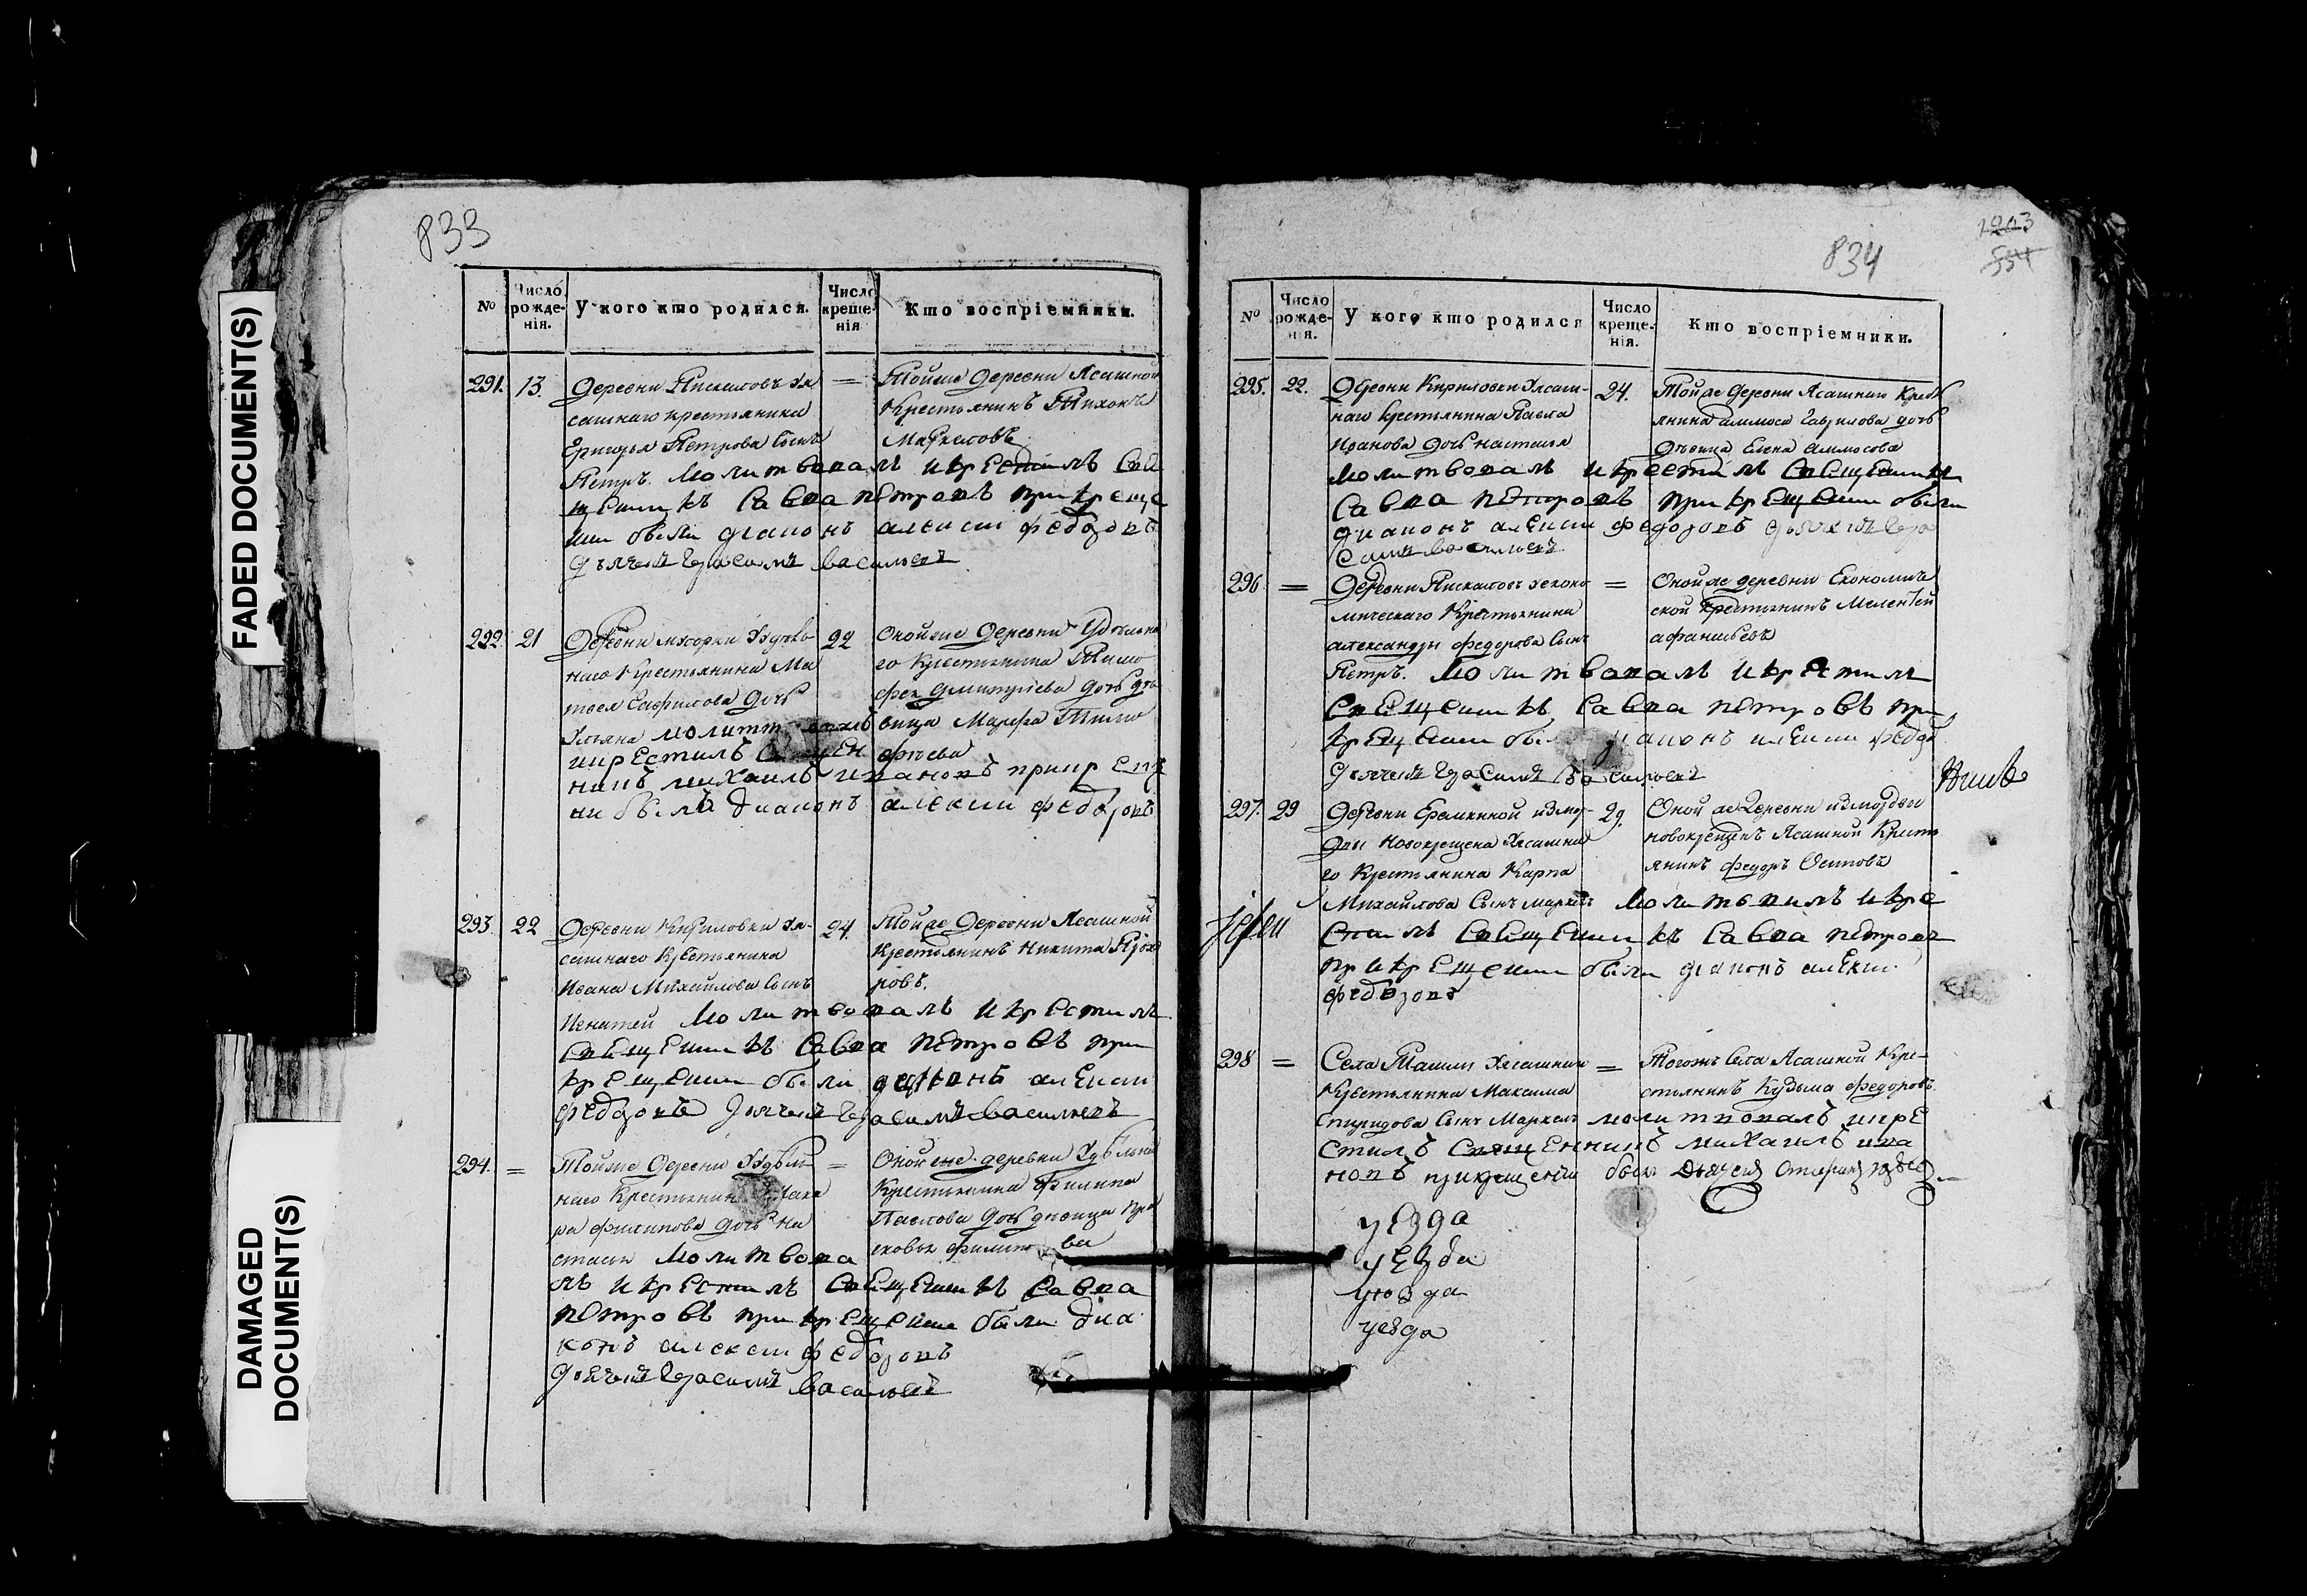 FADED DOCUMENT(S)
DAMAGED
DOCUMENT(S)
833
№
Число
рожде-
нія.
У кого кто родился.
Число
креще-
нія
Кто воспріемники.
291. 13.
Деревни
сашнаго крестьянина
Григорья Петрова сынъ
Петръ. молитвовалъ и крестилъ Свя
щенникъ Савва петровъ при креще
нии были дiаконъ алексии федоровъ
дьячекъ Герасимъ васильевъ
=
Тойже деревни Ясашной
Крестьянинъ Тихонъ
Маркеловъ
292. 21
Деревни
наго Крестьянина Ма
твея Гаврилова дочь
молитвовалъ
икрестилъ
никъ михаилъ ивановъ прикреще
ни былъ диаконъ алексии федоровъ
22
Оной же деревни Удельна
го крестьянина Тимо
фея Дмитриева дочь де
вица Марфа Тимо
феева
293. 22
Деревни Кириловки Уя-
сашнаго Крестьянина
Ивана Михайлова сынъ
Игнатей молитвовалъ и крестилъ
Священникъ Савва петровъ при
крещении были диаконъ алексии
федоровъ дьячекъ Герасимъ васильевъ
24.
Тойже деревни Ясашной
Крестьянинъ Никита
ровъ.
294. =
Тойже деревни Уудель
наго Крестьянина
ра Филипова дочь На
стасья молитвова
лъ и крестилъ Священникъ Савва
петровъ при крещении были диа
конъ алексии федоровъ
дьячекъ Герасимъ васильевъ
=
Оной же деревни Удельна
Крестьянина Филипа
Павлова дочь девица Пра
сковья Филипова
834
1203
№
Число
рожде-
нія.
У кого кто родился
Число
креще-
нія.
Кто воспріемники.
295. 22.
Деревни Кириловки Уясаш-
наго крестьянина Павла
Иванова дочь настасья
молитвовалъ и крестилъ Священникъ
Савва петровъ при крещении были
диаконъ алексии федоровъ дьячекъ Гера
симъ васильевъ.
24.
Тойже деревни Ясашнаго Кресть
янина Гаврилова дочь
девица Елена
296 =
Деревни Уеконо
мическаго Крестьянина
александры федорова сынъ
Петръ. молитвовалъ и крестилъ
Священникъ Савва петровъ при
крещении были диаконъ алексии федор
дьячекъ Герасимъ васильевъ
=
Оной же деревни Економиче
ской крестьянинъ Мелентей
афанасьевъ
297. 29
Деревни Еремкиной измор-
двы Новокрещена Уясашна
го Крестьянина Карпа
Михайлова сынъ маркелъ молитвилъ и кре
стилъ Священникъ Савва петровъ
при крещении были диаконъ алексии
федоровъ
29.
Оной же деревни измордвы
новокрещенъ Ясашной Кресть
янинъ федоръ Осиповъ
298 =
Села Ташлы Уясашнаго
Крестьянина Максима
Спиридова сынъ Маркелъ молитвовалъ икре
стилъ Священникъ михаилъ ива
новъ прикрещении былъ
=
Тогожъ села Ясашной Кре-
стьянинъ Кузьма федоровъ.
уезда
уезда
уезда
уезда